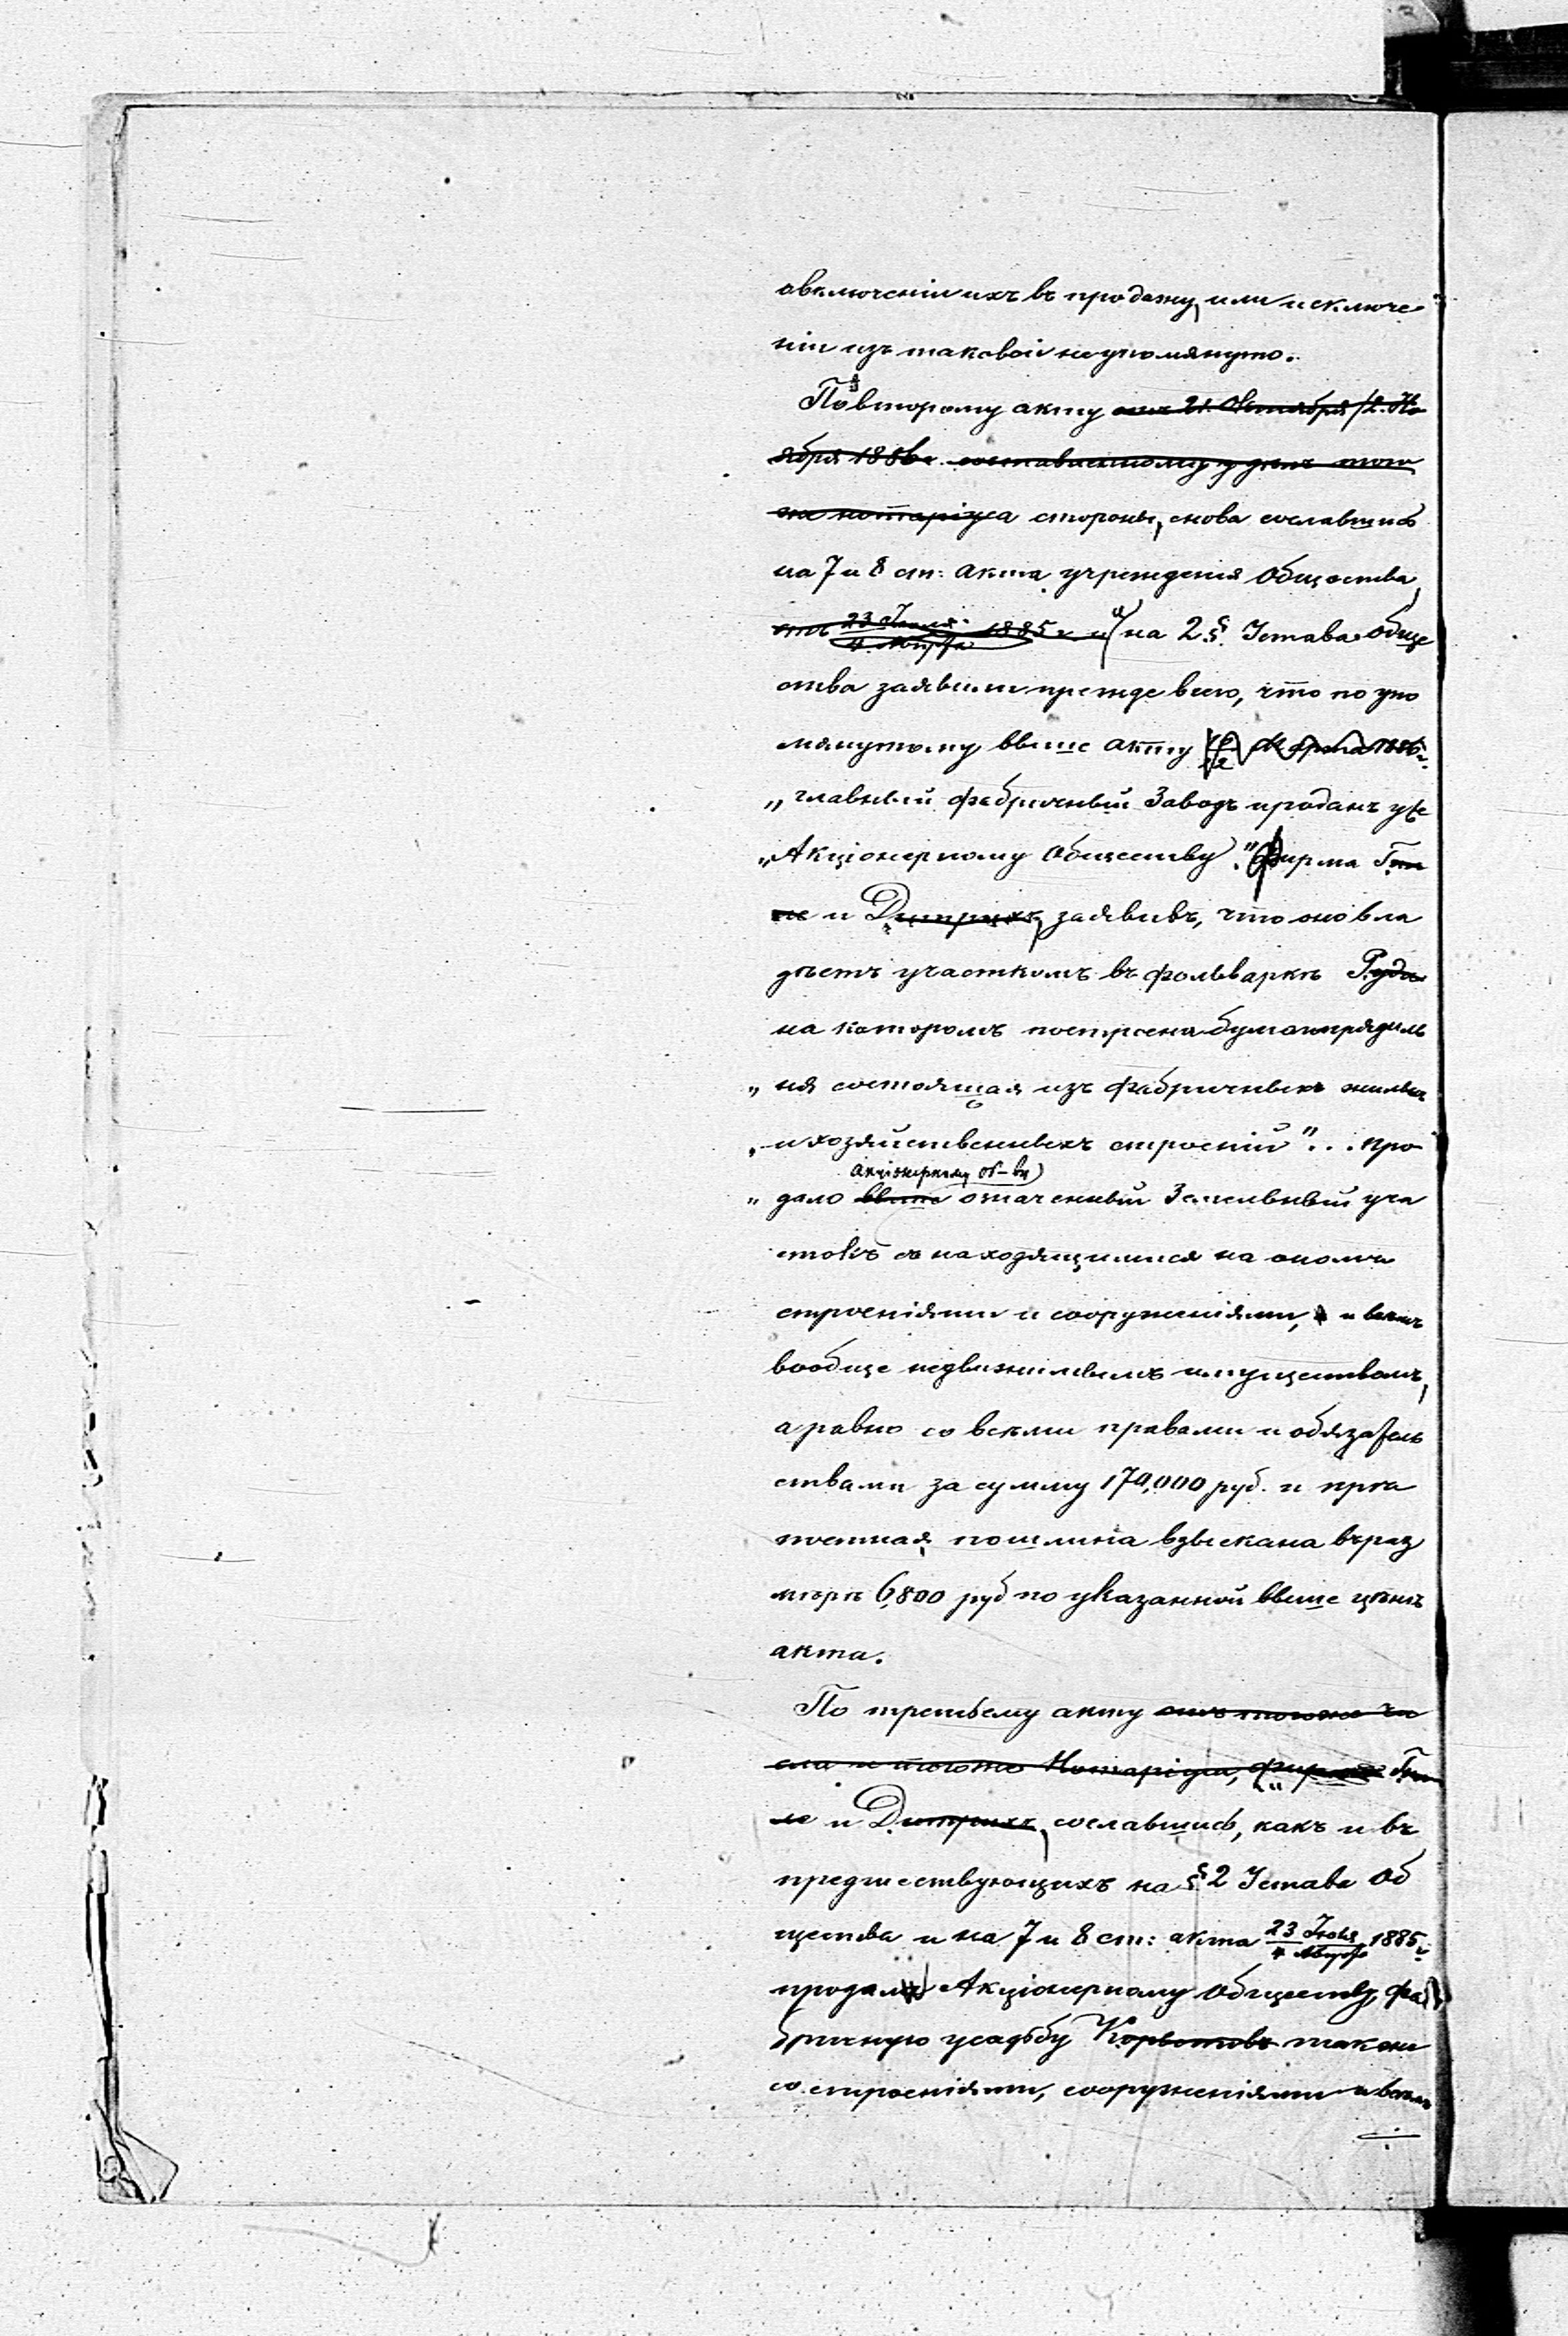 о включеніи ихъ въ продажу, или исключе-
ніи изъ таковой не упомянуто.
По второму акту отъ 21 Октября/2 Но
ября 1886 г. составленному у того
же нотаріуса стороны, снова сославшись
на 7 и 8 ст: акта учрежденія Общества,
отъ 23 Іюля/4 Августа 1885 г. и на 2 §. Устава Обще
ства заявили прежде всего, что по упо
мянутому выше акту Марта 1886 г.
„главный фабричный Заводъ проданъ уже
„Акціонерному Обществу." Фирма Гил
ле и Дитрихъ, заявивъ, что оно вла
дѣетъ участкомъ въ фольваркѣ Руда
на которомъ построена бумагопрядиль
„ня состоящая изъ фабричныхъ жилыхъ
„и хозяйственныхъ строеній"... про
Акціонерному Об-ву
„дало выше означенный Земельный уча
стокъ съ находящимися на ономъ
строеніями и сооруженіями, и всѣмъ
вообще недвижимымъ имуществомъ,
а равно со всѣми правами и обязатель
ствами за сумму 170,000 руб. и крѣ
постная пошлина взыскана въ раз
мѣрѣ 6,800 руб по указанной выше цѣнѣ
акта.
По третьему акту отъ того же чи
сла и того же Нотаріуса, фирма Гил
ле и Дитрихъ, сославшись, какъ и въ
предшествующихъ на § 2 Устава Об
щества и на 7 и 8 ст: акта 23 Іюля/4 Августа 1885 г.
продали Акціонерному Обществу, фа
бричную усадьбу также
со строеніями, сооруженіями и всѣмъ